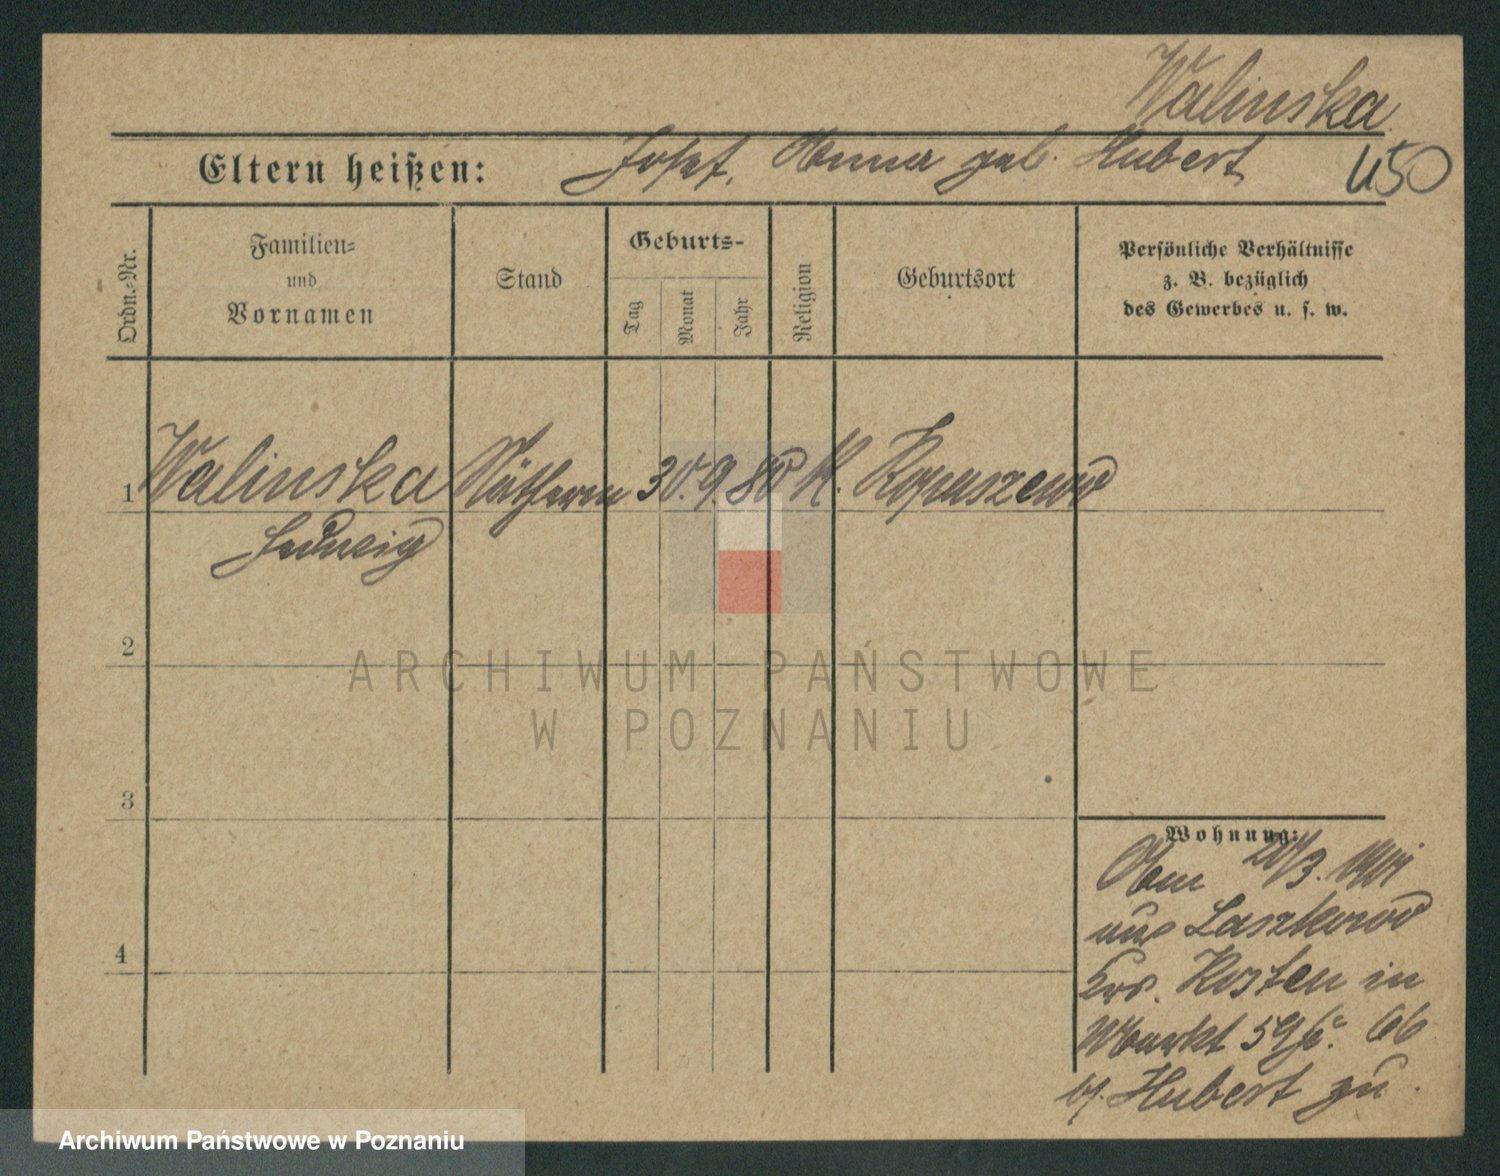 Walinska
Eltern heißen: Josef, Anna geb. Hubert
450
Ordn.=Nr.
Familien=
und
Vornamen
Stand
Geburts-
Tag
Monat
Jahr
Religion
Geburtsort
Persönliche Verhältnisse
z. B. bezüglich
des Gewerbes u. s. w.
1 Walinska Nätherin 30. 9. 80 K. Kopaszewo
Hedwig
2
ARCHIWUM PAŃSTWOWE
W POZNANIU
3
Wohnung:
Am 20/3.
aus Laszkowo
Krs. Kosten in
Markt 59 66
b/. Hubert zu.
4
Archiwum Państwowe w Poznaniu